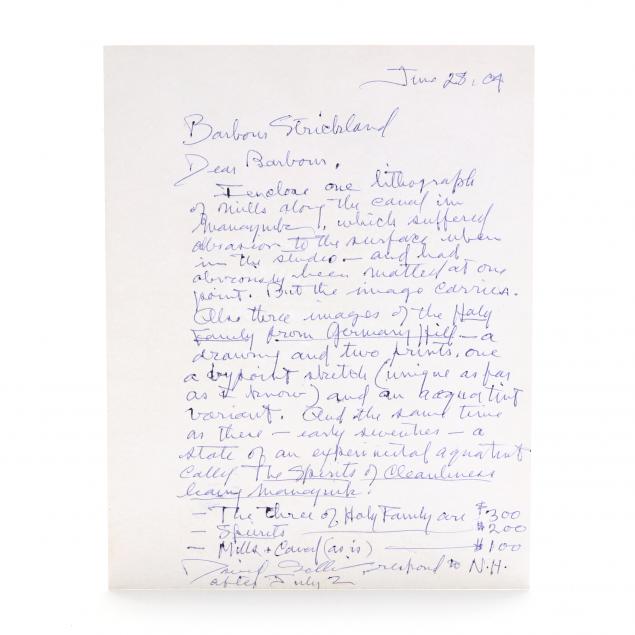 June 28, 04
Barbour Strickland
Dear Barbour,
I enclose one lithograph
of mills along the canal in
Manayunk, which suffered
abrasion to the surface when
in the studio — and had
obviously been matted at one
point. But the image carries.
Also three images of the Holy
Family from Germany Hill — a
drawing and two prints, one
a drypoint sketch (unique as far
as I know) and an aquatint
variant. And the same time
as these — early seventies — a
state of an experimental aquatint
called The Spirits of Cleanliness
leaving Manayunk.
— The three of Holy Family are $300
— Spirits — $200
— Mills + Canal (as is) — $100
David respond to N.H.
after July 2